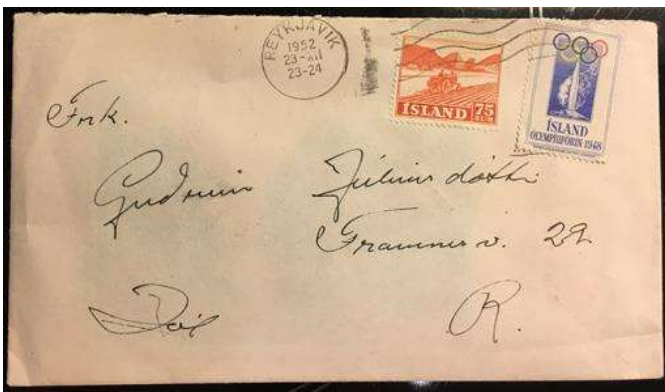 REYKJAVÍK
1952
23-XII
23-24
ÍSLAND 75
AUR
ÍSLAND
OLYMPÍUFÖRIN 1948
Frk.
Guðrúnu Júlíusdóttir
v. 22
R.